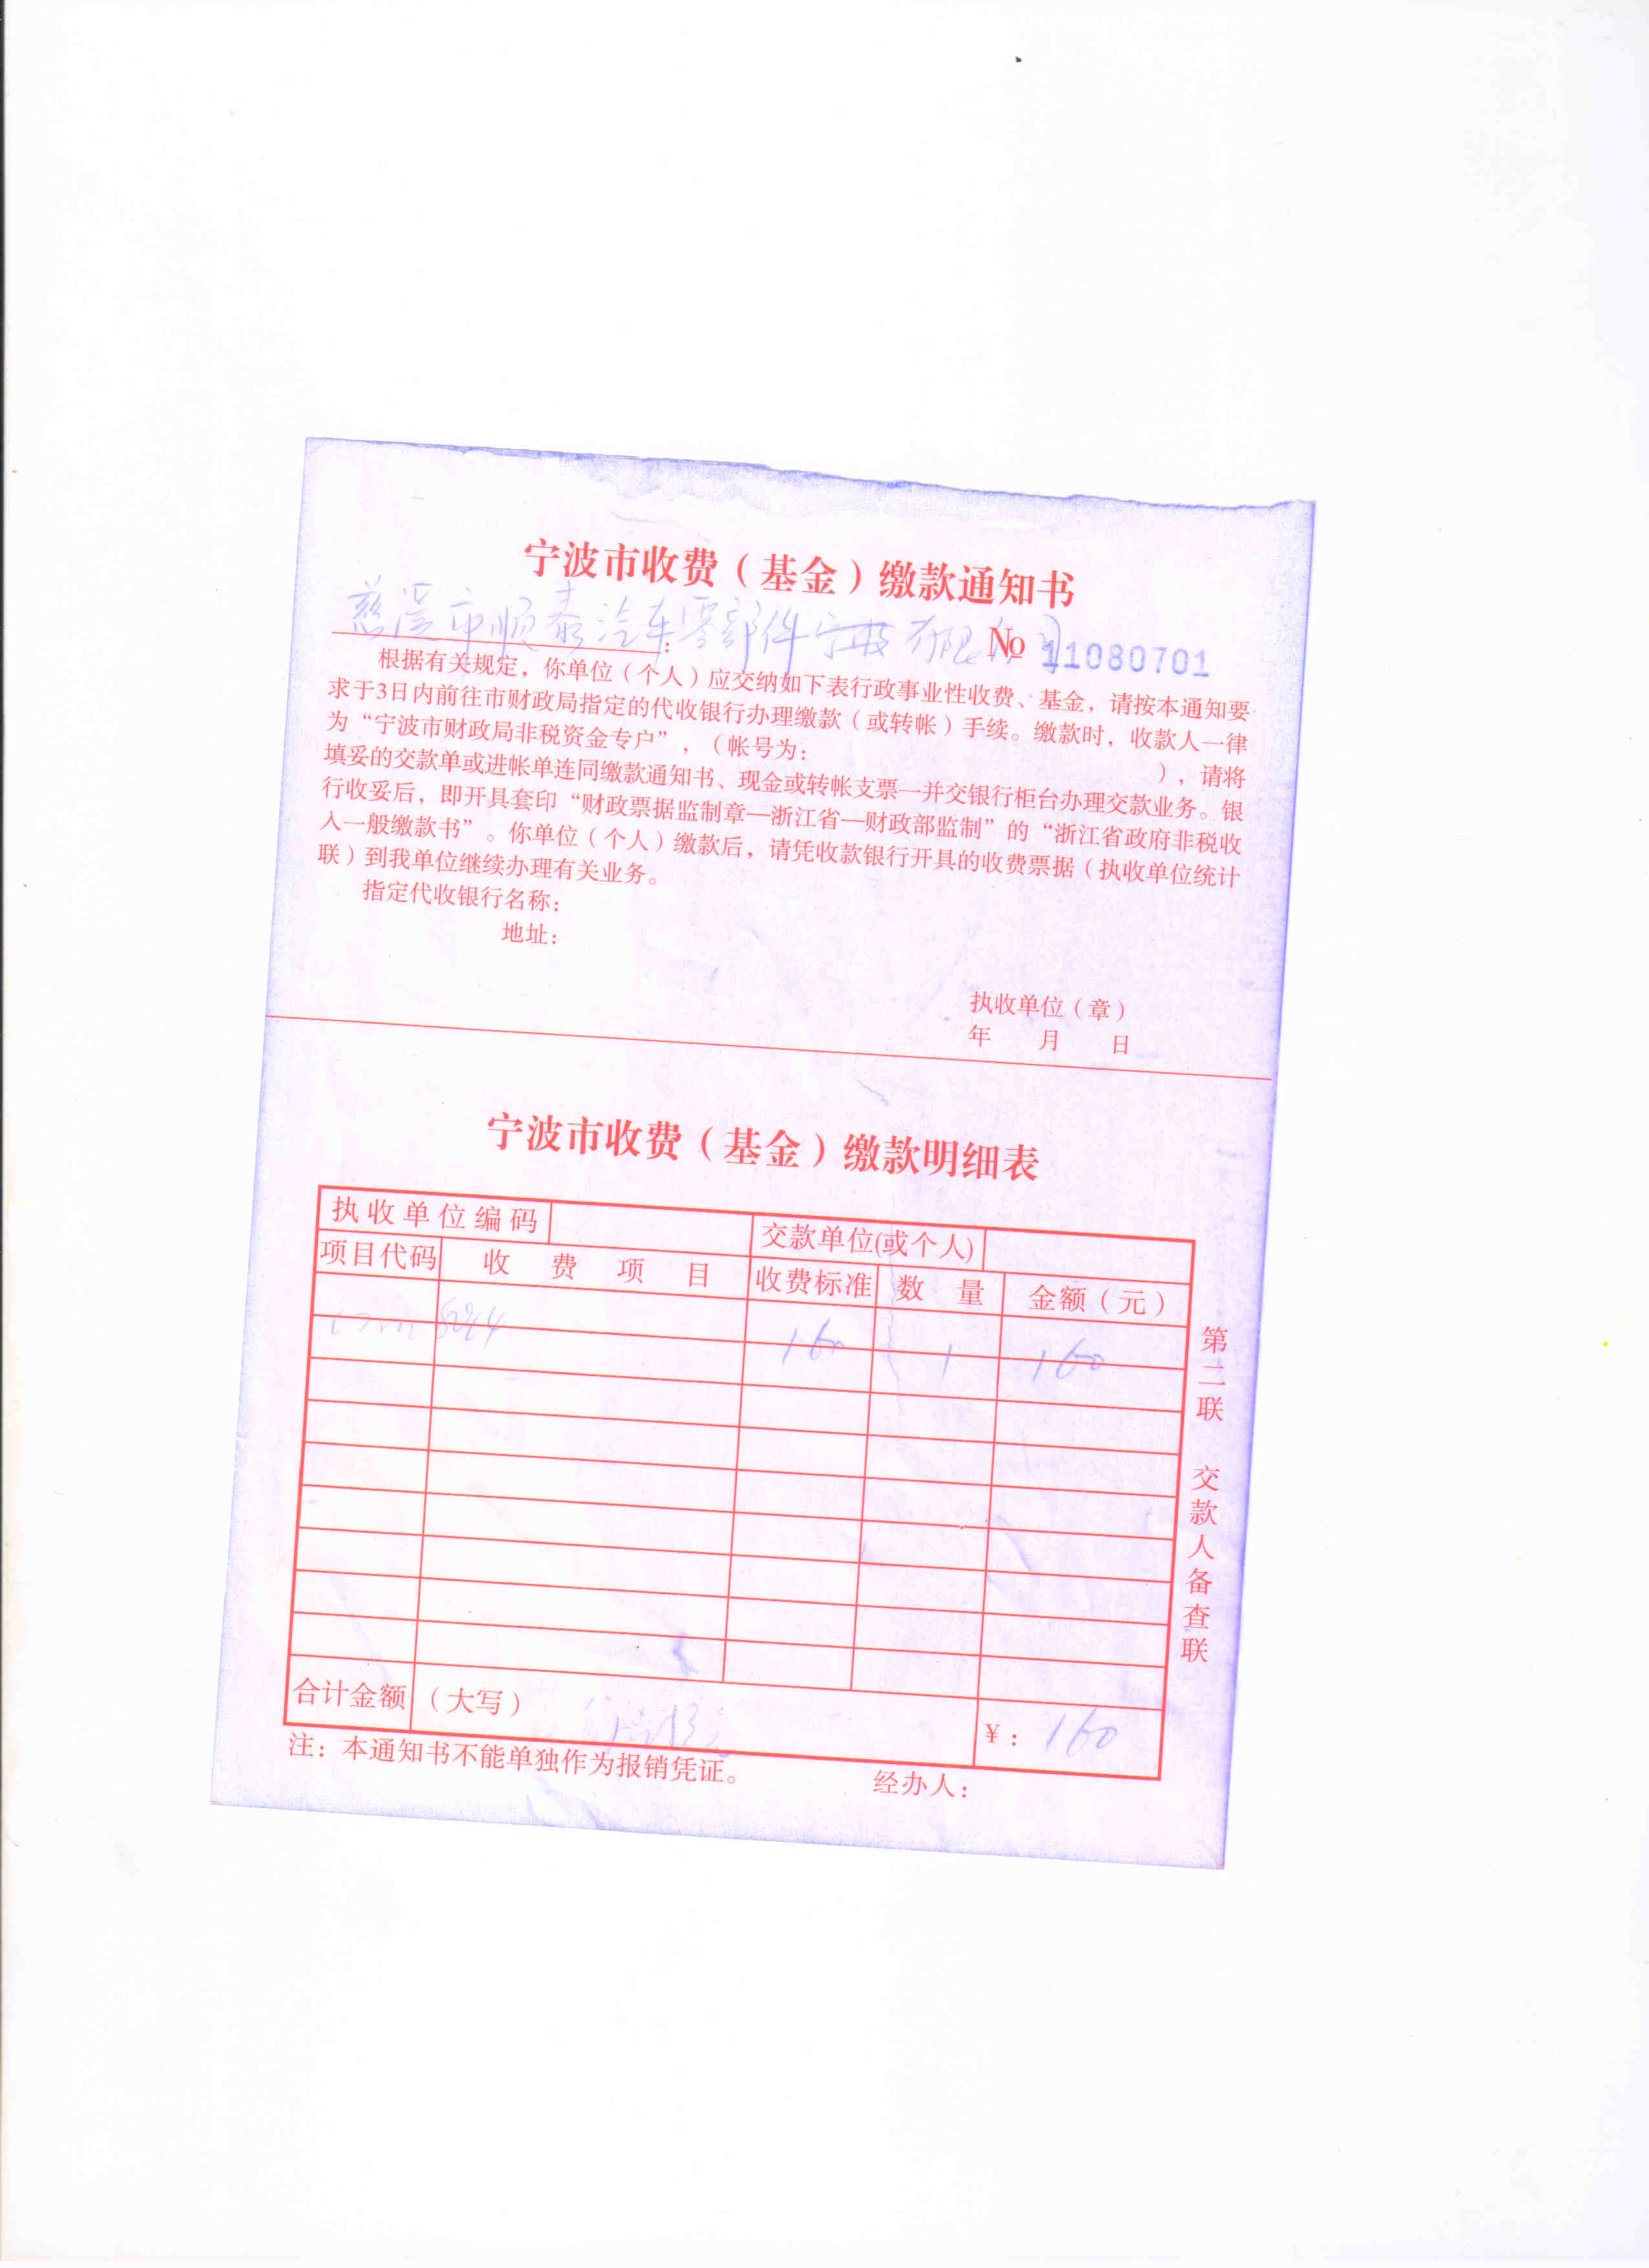 宁波市收费（基金）缴款通知书
慈溪市顺泰汽车零部件 有限公司
：
No 11080701
根据有关规定，你单位（个人）应交纳如下表行政事业性收费、基金，请按本通知要
求于3日内前往市财政局指定的代收银行办理缴款（或转帐）手续。缴款时，收款人一律
为“宁波市财政局非税资金专户”，（帐号为： ），请将
填妥的交款单或进帐单连同缴款通知书、现金或转帐支票一并交银行柜台办理交款业务。银
行收妥后，即开具套印“财政票据监制章—浙江省—财政部监制”的“浙江省政府非税收
入一般缴款书”。你单位（个人）缴款后，请凭收款银行开具的收费票据（执收单位统计
联）到我单位继续办理有关业务。
指定代收银行名称：
地址：
执收单位（章）
年 月 日
宁波市收费（基金）缴款明细表
执收单位编码 交款单位(或个人)
项目代码 收费项目 收费标准 数量 金额（元）
160 1 160
合计金额 （大写） ¥：160
注：本通知书不能单独作为报销凭证。 经办人：
第二联 交款人备查联